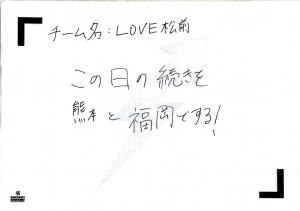 チーム名：LOVE松前
この日の続きを
熊本と福岡でする！